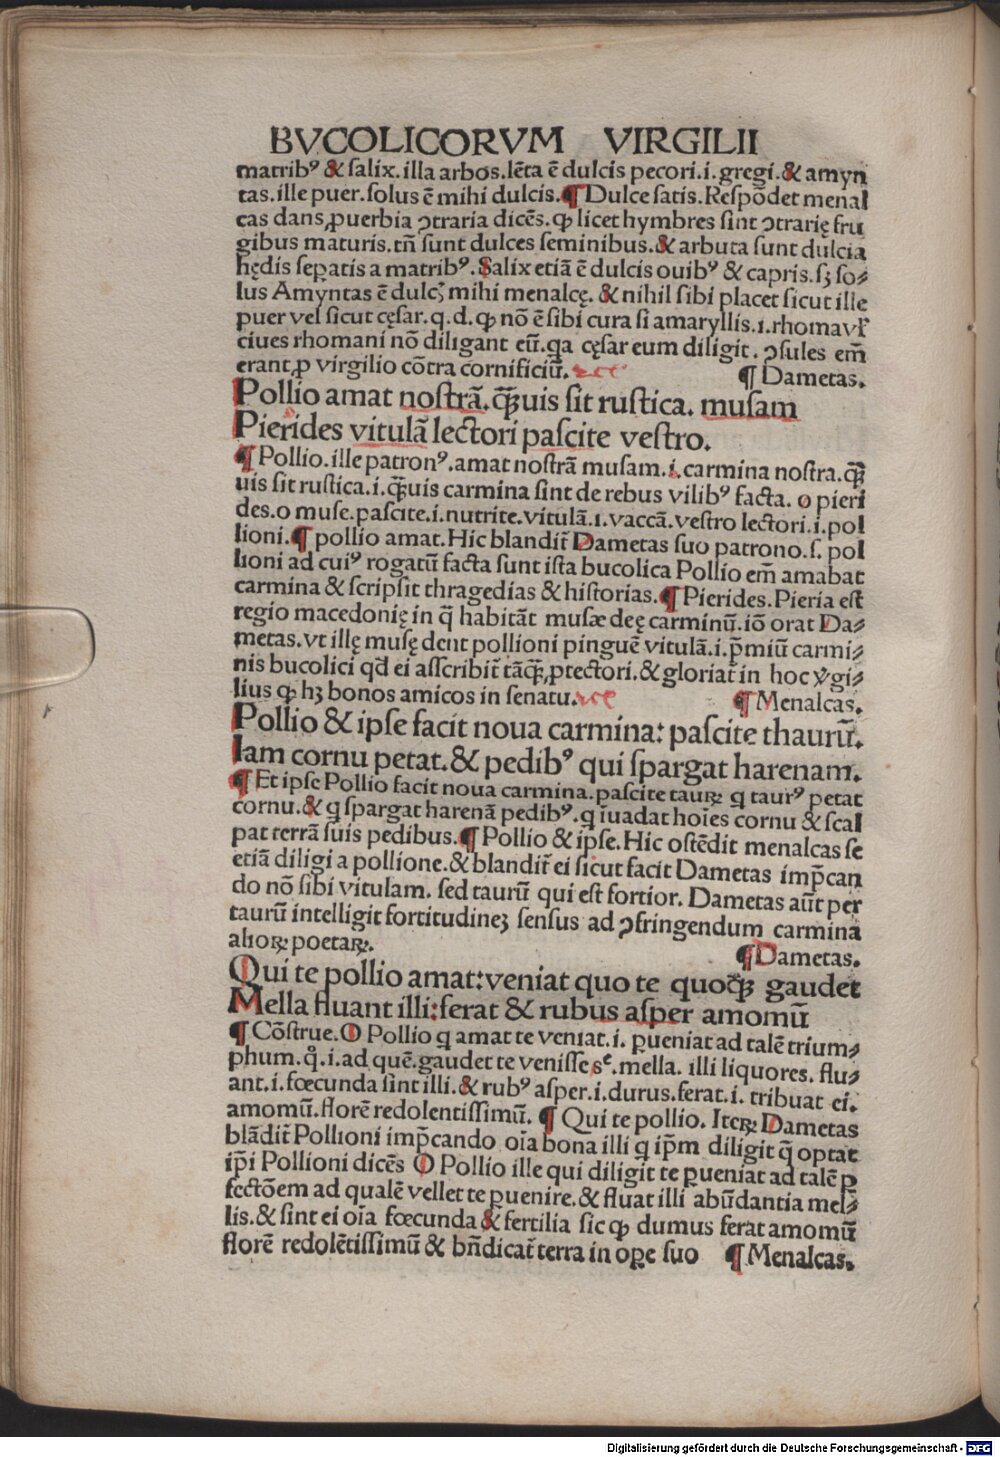 BVCOLICORVM VIRGILII
matribꝰ & ſalix. illa arbos. lēta ē dulcis pecori. i. gregi. & amyn
tas. ille puer. ſolus ē mihi dulcis. ¶ Dulce ſatis. Reſpōdet menal
cas dans ꝓuerbia ↄtraria dicēs. ꝙ licet hymbres ſint ↄtrarię fru
gibus maturis. tñ ſunt dulces ſeminibus. & arbuta ſunt dulcia
hędis ſeꝑatis a matribꝰ. Salix etiā ē dulcis ouibꝰ & capris. ſꝫ ſo⸗
lus Amyntas ē dulcꝭ mihi menalcę. & nihil ſibi placet ſicut ille
puer vel ſicut cęſar. q. d. ꝙ nō ē ſibi cura ſi amaryllis. i. rhoma vꝉ
ciues rhomani nō diligant eū. qa cęſar eum diligit. ↄſules em̄
erant ꝓ virgilio cōtra cornificiū. ¶ Dametas.
Pollio amat noſtrā. ꝗ̃uis ſit ruſtica. muſam
Pierides vitulā lectori paſcite veſtro.
¶ Pollio. ille patronꝰ. amat noſtrā muſam. i. carmina noſtra. ꝗ̃
uis ſit ruſtica. i. ꝗ̃uis carmina ſint de rebus vilibꝰ facta. o pieri
des. o muſe. paſcite. i. nutrite. vitulā. i. vaccā. veſtro lectori. i. pol
lioni. ¶ pollio amat. Hic blandit̄ Dametas ſuo patrono. ſ. pol
lioni ad cuiꝰ rogatū facta ſunt iſta bucolica Pollio em̄ amabat
carmina & ſcripſit thragedias & hiſtorias. ¶ Pierides. Pieria eſt
regio macedonię in q̄ habitāt muſæ deę carminū. iō orat Da⸗
metas. vt illę muſę dent pollioni pinguē vitulā. i. p̄miū carmi⸗
nis bucolici qd ei aſſcribit̄ tāꝗ̃ ꝓtectori. & gloriat̄ in hoc v̓gi⸗
lius ꝙ hꝫ bonos amicos in ſenatu. ¶ Menalcas.
Pollio & ipſe facit noua carmina: paſcite thaurū.
Iam cornu petat. & pedibꝰ qui ſpargat harenam.
¶ Et ipſe Pollio facit noua carmina. paſcite tauꝝ q taurꝰ petat
cornu. & q ſpargat harenā pedibꝰ. q īuadat hoīes cornu & ſcal
pat terrā ſuis pedibus. ¶ Pollio & ipſe. Hic oſtēdit menalcas ſe
etiā diligi a pollione. & blandit̄ ei ſicut facit Dametas imp̄can
do nō ſibi vitulam. ſed taurū qui eſt fortior. Dametas aūt per
taurū intelligit fortitudineꝫ ſenſus ad ↄfringendum carmina
alioꝝ poetaꝝ. ¶ Dametas.
Qui te pollio amat: veniat quo te quoꝗ̃ gaudet
Mella fluant illi: ferat & rubus aſper amomū
¶ Cōſtrue. O Pollio q amat te veniat. i. ꝑueniat ad talē trium⸗
phum. qͦ. i. ad quē. gaudet te veniſſe ſe. mella. illi liquores. flu⸗
ant. i. fœcunda ſint illi. & rubꝰ aſper. i. durus. ferat. i. tribuat ei.
amomū. florē redolentiſſimū. ¶ Qui te pollio. Iteꝝ Dametas
blādit̄ Pollioni imp̄cando oīa bona illi q ip̄m diligit q̄ optat
ip̄i Pollioni dicēs O Pollio ille qui diligit te ꝑueniat ad talē ꝑ
fectōem ad qualē vellet te ꝑuenire. & fluat illi abūdantia mel⸗
lis. & ſint ei oīa fœcunda & fertilia ſic ꝙ dumus ferat amomū
florē redolētiſſimū & bn̄dicat̄ terra in oꝑe ſuo ¶ Menalcas.
Digitalisierung gefördert durch die Deutsche Forschungsgemeinschaft - DFG